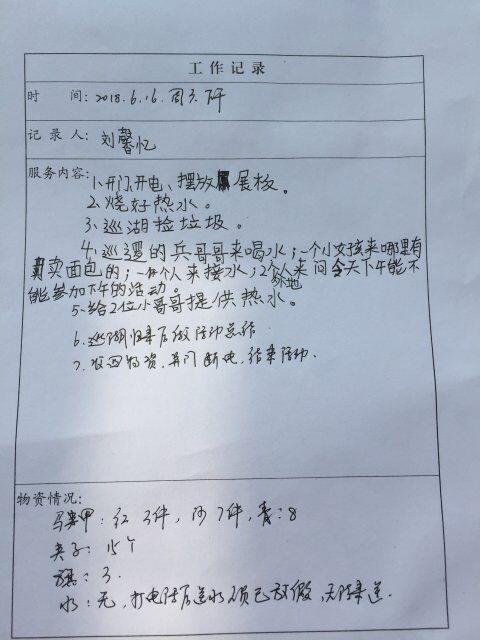 工作记录
时　　间：2018.6.16.周六下午
记录人：刘馨忆
服务内容：1、开门、开电、摆放展板。
2、烧好热水。
3、巡湖捡垃圾。
4、巡逻的兵哥哥来喝水；一个小女孩来哪里有
卖面包的；一个人来接水；2个外地人来问今天下午能不
能参加下午的活动。
5、给2位小哥哥提供热水。
6、巡湖归来后做活动总结
7、收回物资，关门断电，结束活动.
物资情况：
马甲：红3件，7件，青：8
夹子：15个
旗：3.
水：无，打电话后送水已放假，无法来送.